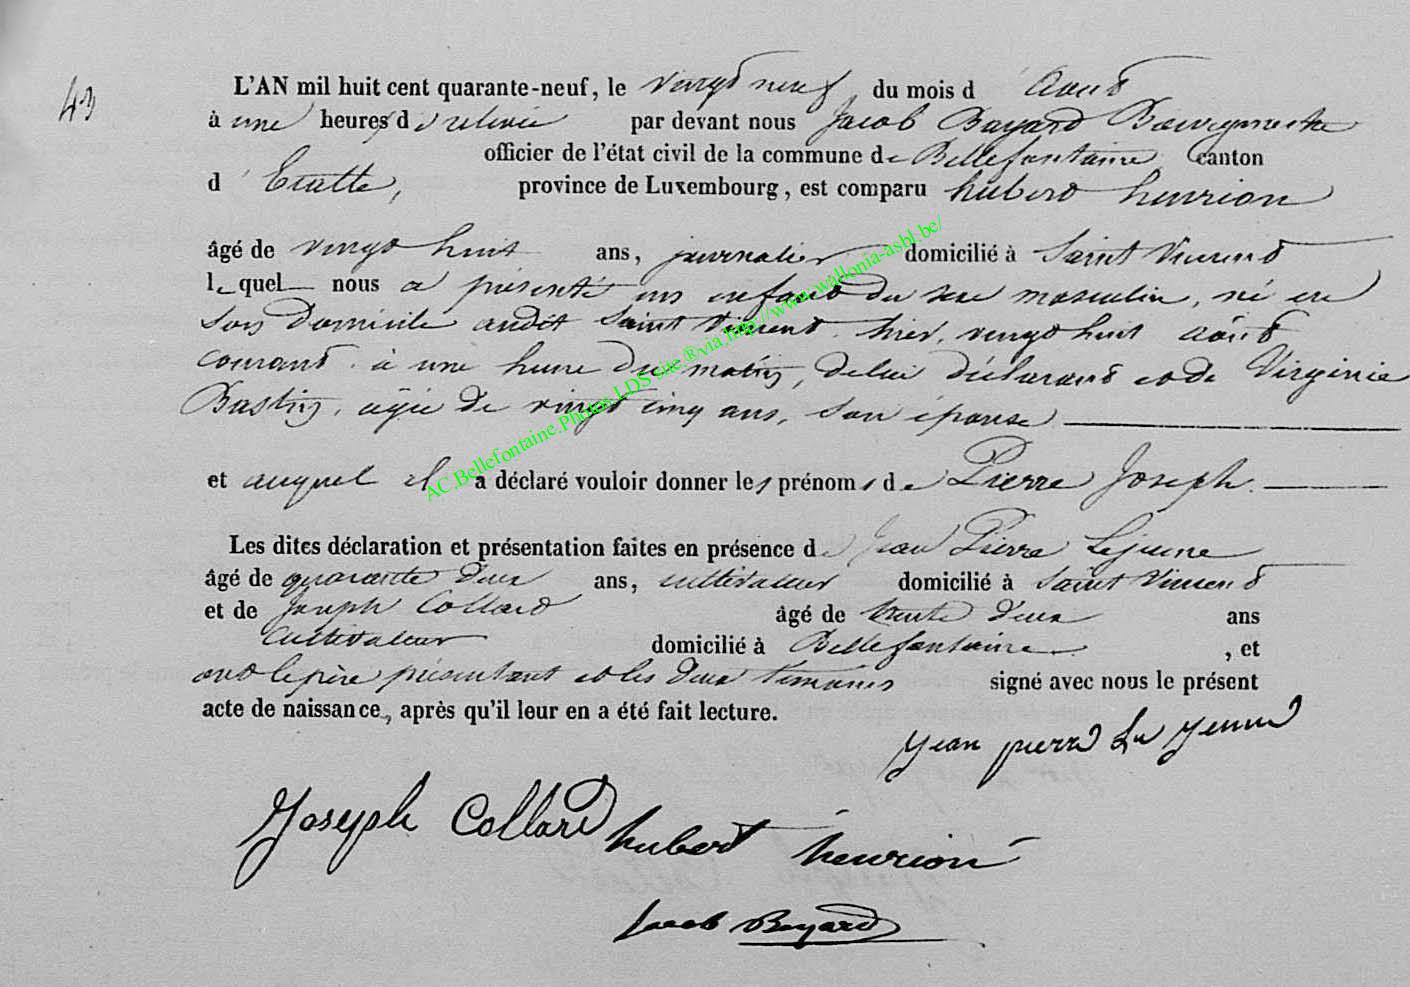 43
L'AN mil huit cent quarante-neuf, le vingt neuf du mois d'Août
à une heures de relevée par devant nous Jacob Bayard Bourgmestre
officier de l'état civil de la commune de Bellefontaine canton
d'Etalle, province de Luxembourg, est comparu hubert henrion
âgé de vingt huit ans, journalier domicilié à Saint Vincent
lequel nous a présenté un enfant du sexe masculin, né en
son domicile audit Saint Vincent hier, vingt huit août
courant à une heure du matin, de lui déclarant et de Virginie
Bastin, agée de vingt cinq ans, son épouse
et auquel il a déclaré vouloir donner les prénoms de Pierre Joseph.
Les dites déclaration et présentation faites en présence de Jean Pierre Lejeune
âgé de quarante deux ans, cultivateur domicilié à Saint Vincent
et de Joseph Collard âgé de trente deux ans
cultivateur domicilié à Bellefontaine, et
ont le père présentant et les deux témoins signé avec nous le présent
acte de naissance, après qu'il leur en a été fait lecture.
Jean pierre Le Jeune
Joseph Collard hubert henrion
Jacob Bayard
AC.Bellefontaine.Photos LDS site ®via http://www.wallonia-asbl.be/